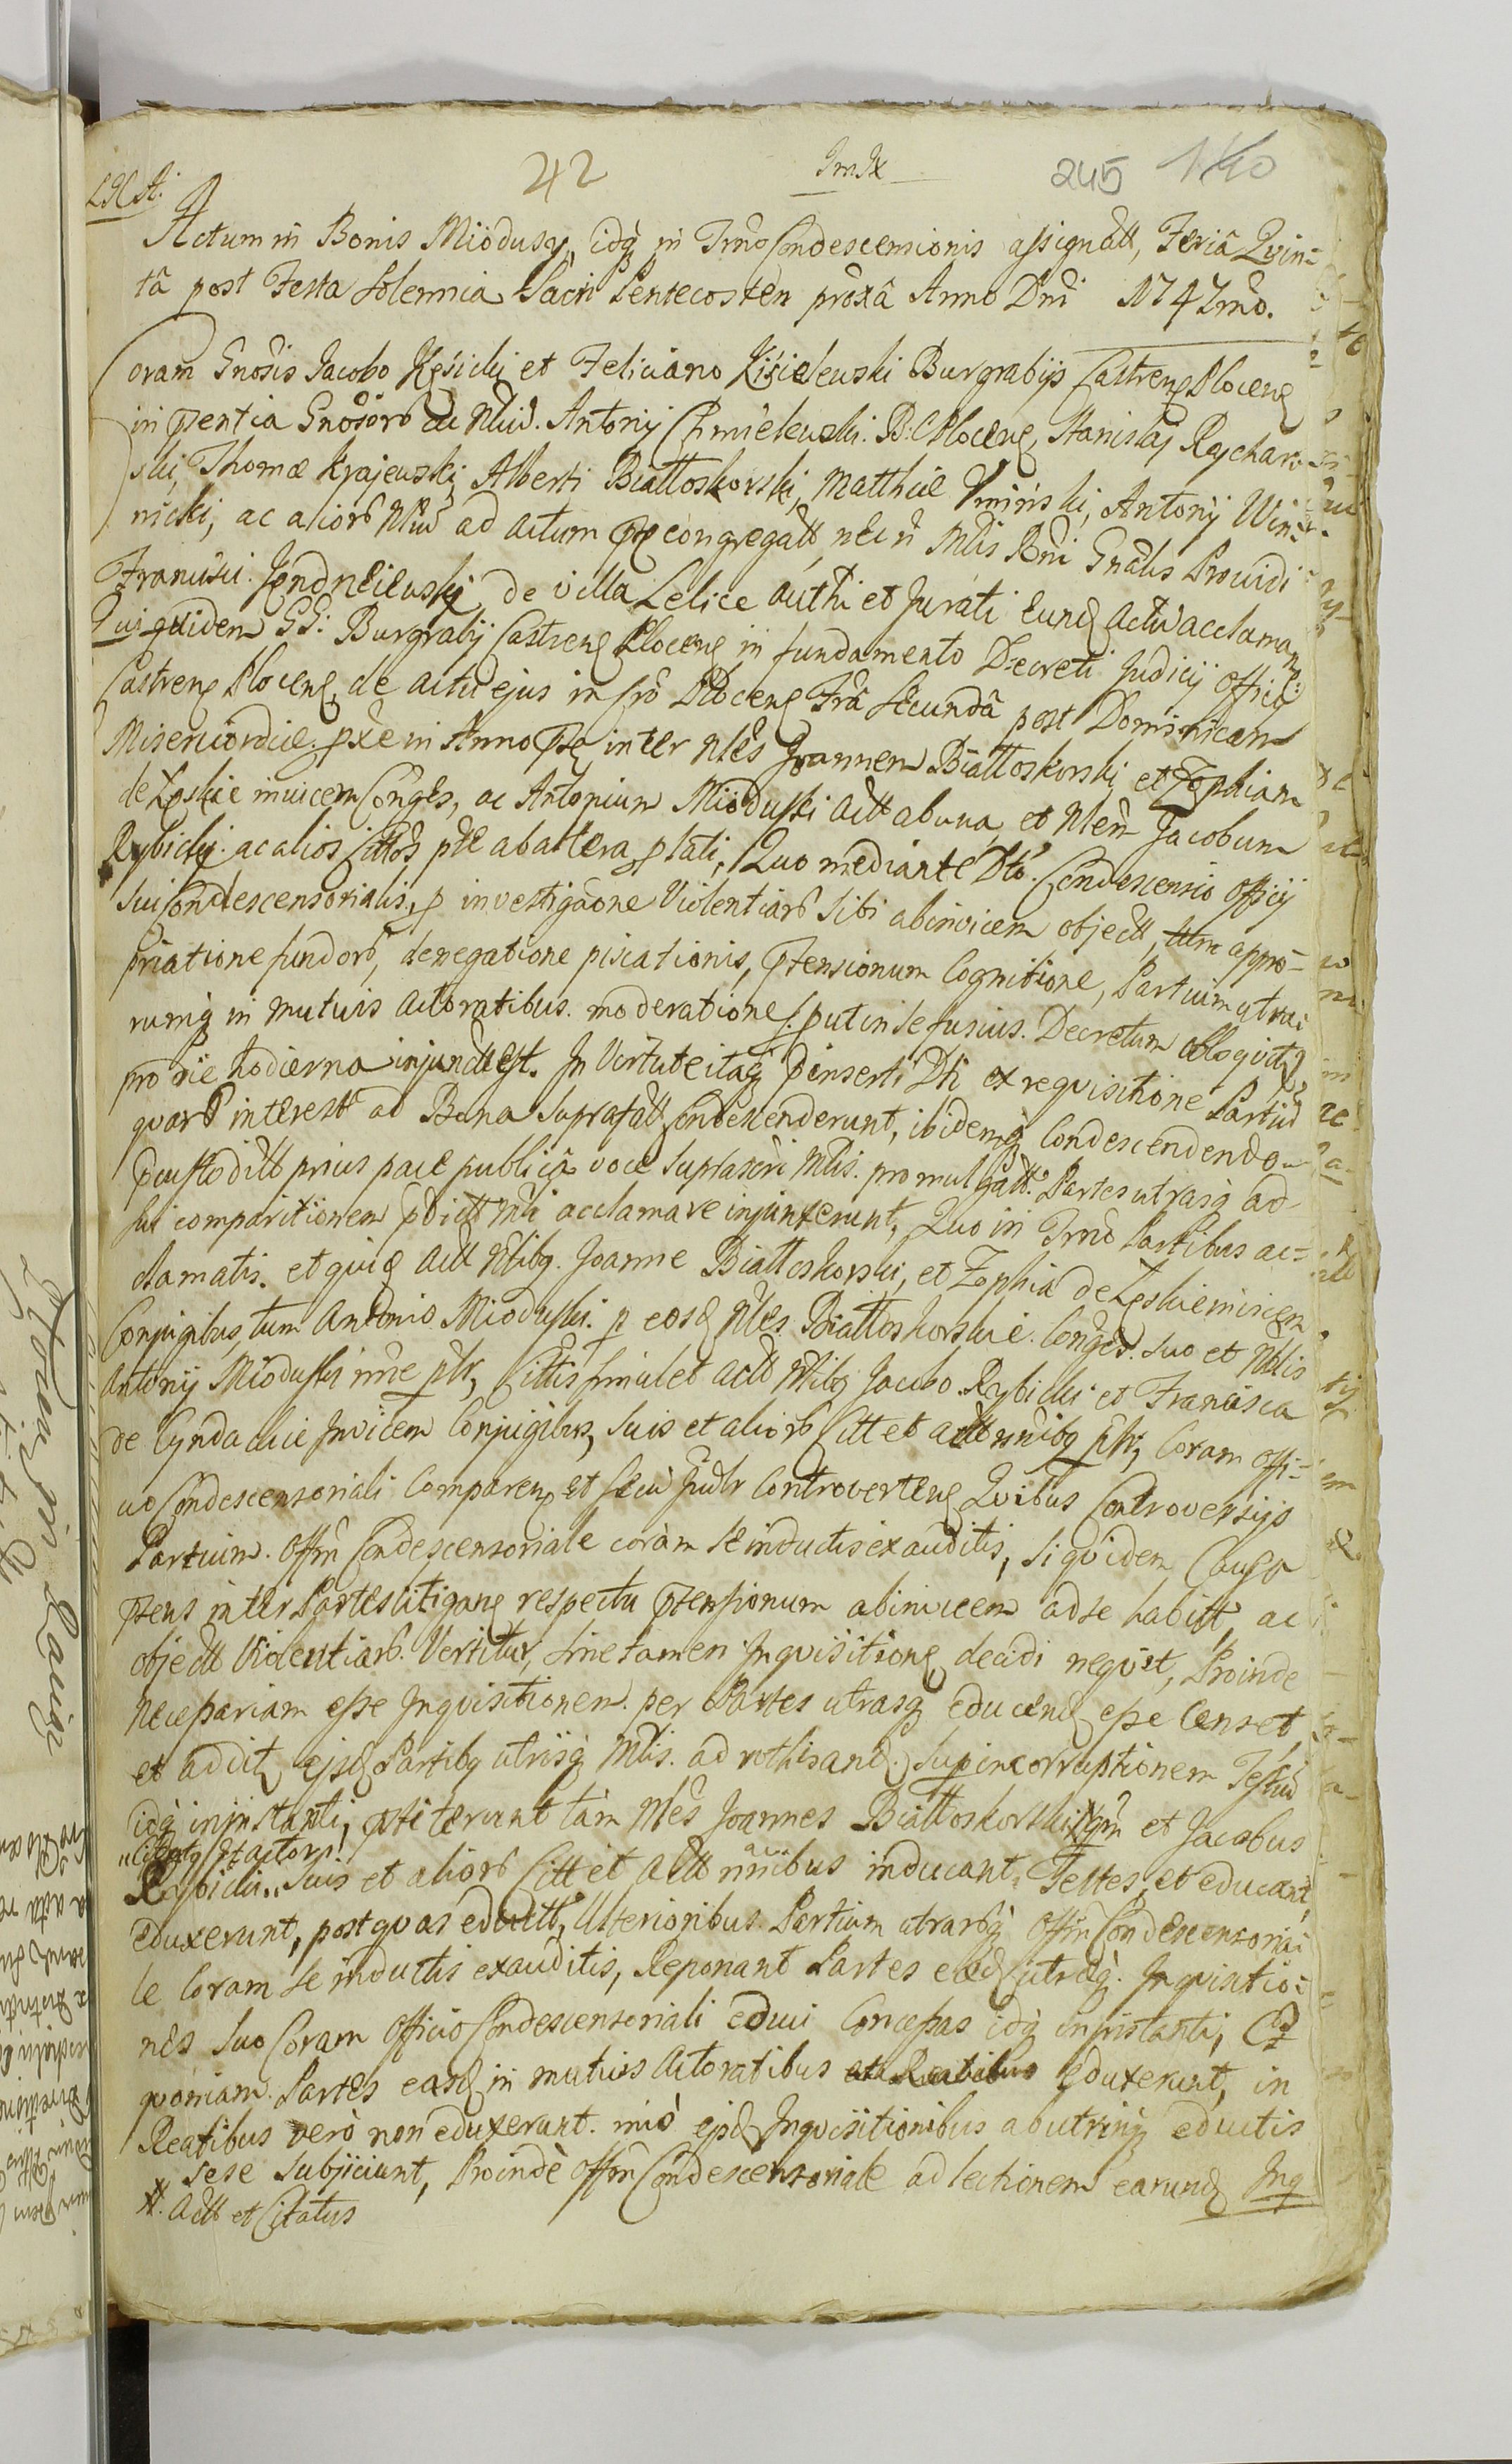 42 245 140
Actum in Bonis Miodusy, idq in Trno Condescensionis assignatt, Feriâ Qvin=
tâ post Festa Solennia Sacri Pentecosten proxâ Anno Dni 1742mo.
Coram Gnosis Jacobo Kęsicki et Feliciano Kisielewski Burgrabijs Castren Plocen
in Psentia Gnosorb ac Nliu. Antonij Chmielewski. B: C Plocen, Stanislaj Rychar=
ski, Thomæ Krajewski, Alberti Białłoskorski, Matthiæ Uminski, Antonij Win=
nicki, ac aliorb Nliu ad actum Pp congregatt, nec n Mlis Rni Gnalis Providi
Francisci de villa Lelice authi et Jurati Eund actu acclaman
Qui quidem GG: Burgrabij Castren Plocen in fundamento Decreti Judicij Offic:
Castren Plocen de actu ejus in fro Plocen Fra Secundâ post Dominicam
Misericordiæ. pxe in Anno Pse inter Nles Joannem Białłoskorski et Zophiam
de Łoskie invicem Conges, ac Antonium Miodusski Actt ab una, et Nlem Jacobum
Rybicki. ac alios Cittos pte ab altera plati, Quo mediante Dto. Condescensio Officij
sui Condescensorialis, p investigaone Violentiarb Sibi abinvicem objectt, appro=
priatione fundorb, denegatione piscationis, Ptensionum Cognitione, Partium utrar=
rumq in mutuis Actoratibus. moderatione, put in se fusius. Decretum obloqvit
pro die hodierna injunctt est. In Virtute itaq Pinserti Dti ex reqvisitione Partiu
qvarb interestt ad Bona Suprafatt Condescenderunt, ibidemq Condescendendo
Pcustoditt prius pace publicâ voce Suprascri Mlis. promulgatt. Partes utrasq ad
sui comparitionem Pdictt Mli acclamare injunxerunt, Quo in Trno Partibus ac=
clamatis. et qui Actt Nlibq. Joanne Białłoskorski, et Zophia de Łoskie invicem
Conjugibus, tum Antonio Miodusski. p eosd Nles Białłoskorskie. Conges. suo et Nblis
Antonij Miodusski nne ptr, Cittis simul et actt Nlibq Jacobo Rybicki et Francisca
de Invicem Conjugibus, Suis et aliorb Citt et actt nnibq ptr, Coram Offi=
cio Condescensoriali Comparen et Secu Judlr Controverten Qvibus Controversijs
Partium. Offm Condescensoriale coram se inductis exauditis, Siqvidem Causa
Psens inter Partes litigan respectu Ptensionum abinvicem ad se habitt, ac
objectt Violentiarb. Vertitur, sine tamen Inqvisitione decidi neqvit, Proinde
necessariam esse Inqvisitionem per Partes utrasq educend esse Censet,
et addit ejsd Partibq utrisq Mlis. ad rothisand. Sup incorruptionem Testiu
idq in instanti, Pstiterunt tam Nles Joannes Białłoskorski et Jacobus
"Citatq et actor
Rybicki.. Suis et aliorb Citt et actt nnibus inducant, Testes, et educant,
eduxerunt, post qvas eductt, Ulterioribus Partium utrarbq Offm Condescensoria=
le Coram Se inductis exauditis, Reponant Partes eæd utræq. Inqvisitio=
nes Suo Coram Officio Condescensoriali educi Concessas idq in instanti,
qvoniam Partes easd in mutuis Actoratibus eduxerunt, in
Reatibus vero non eduxerunt. imo ejsd Inqvisitionibus ab utrinq eductis
sese subjiciunt, Proindè Offm Condescensoriale ad lectionem earund Inq
#. Actt et Citatus